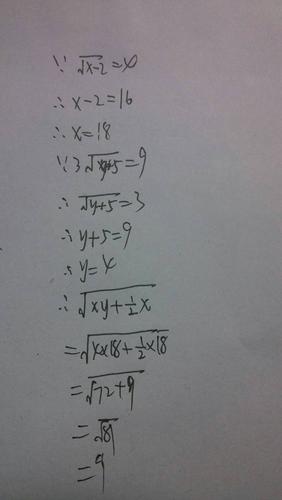 ∵ √(x-2)=4
∴ x-2=16
∴ x=18
∵ 3√(y+5)=9
∴ √(y+5)=3
∴ y+5=9
∴ y=4
∴ √(xy+½x)
=√(4×18+½×18)
=√(72+9)
=√81
=9